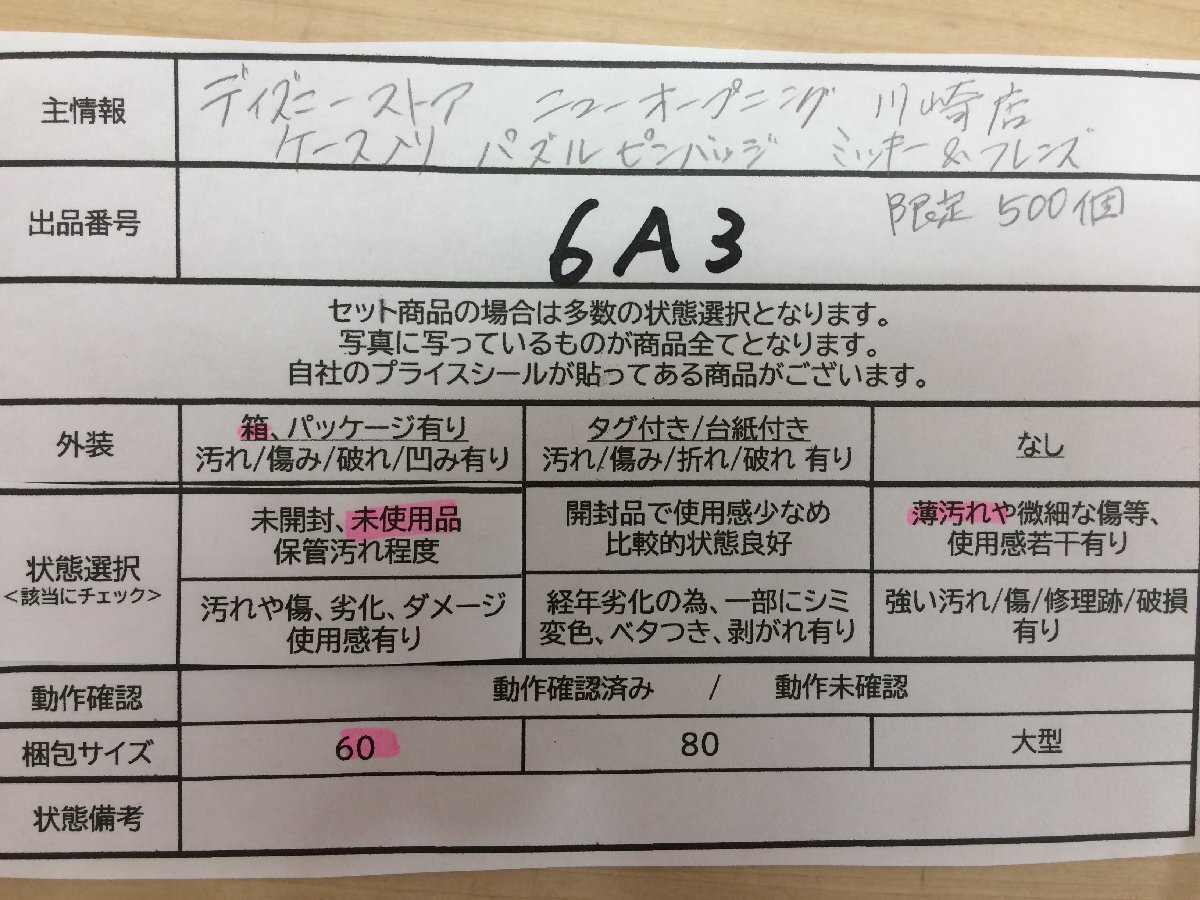 主情報
ディズニーストア ニューオープニング 川崎店
ケース入り パズルピンバッジ ミッキー&フレンズ
限定 500個
出品番号
6A3
セット商品の場合は多数の状態選択となります。
写真に写っているものが商品全てとなります。
自社のプライスシールが貼ってある商品がございます。
外装
箱、パッケージ有り
汚れ/傷み/破れ/凹み有り
タグ付き/台紙付き
汚れ/傷み/折れ/破れ 有り
なし
状態選択
<該当にチェック>
未開封、未使用品
保管汚れ程度
開封品で使用感少なめ
比較的状態良好
薄汚れや微細な傷等、
使用感若干有り
汚れや傷、劣化、ダメージ
使用感有り
経年劣化の為、一部にシミ
変色、ベタつき、剥がれ有り
強い汚れ/傷/修理跡/破損
有り
動作確認
動作確認済み / 動作未確認
梱包サイズ
60
80
大型
状態備考